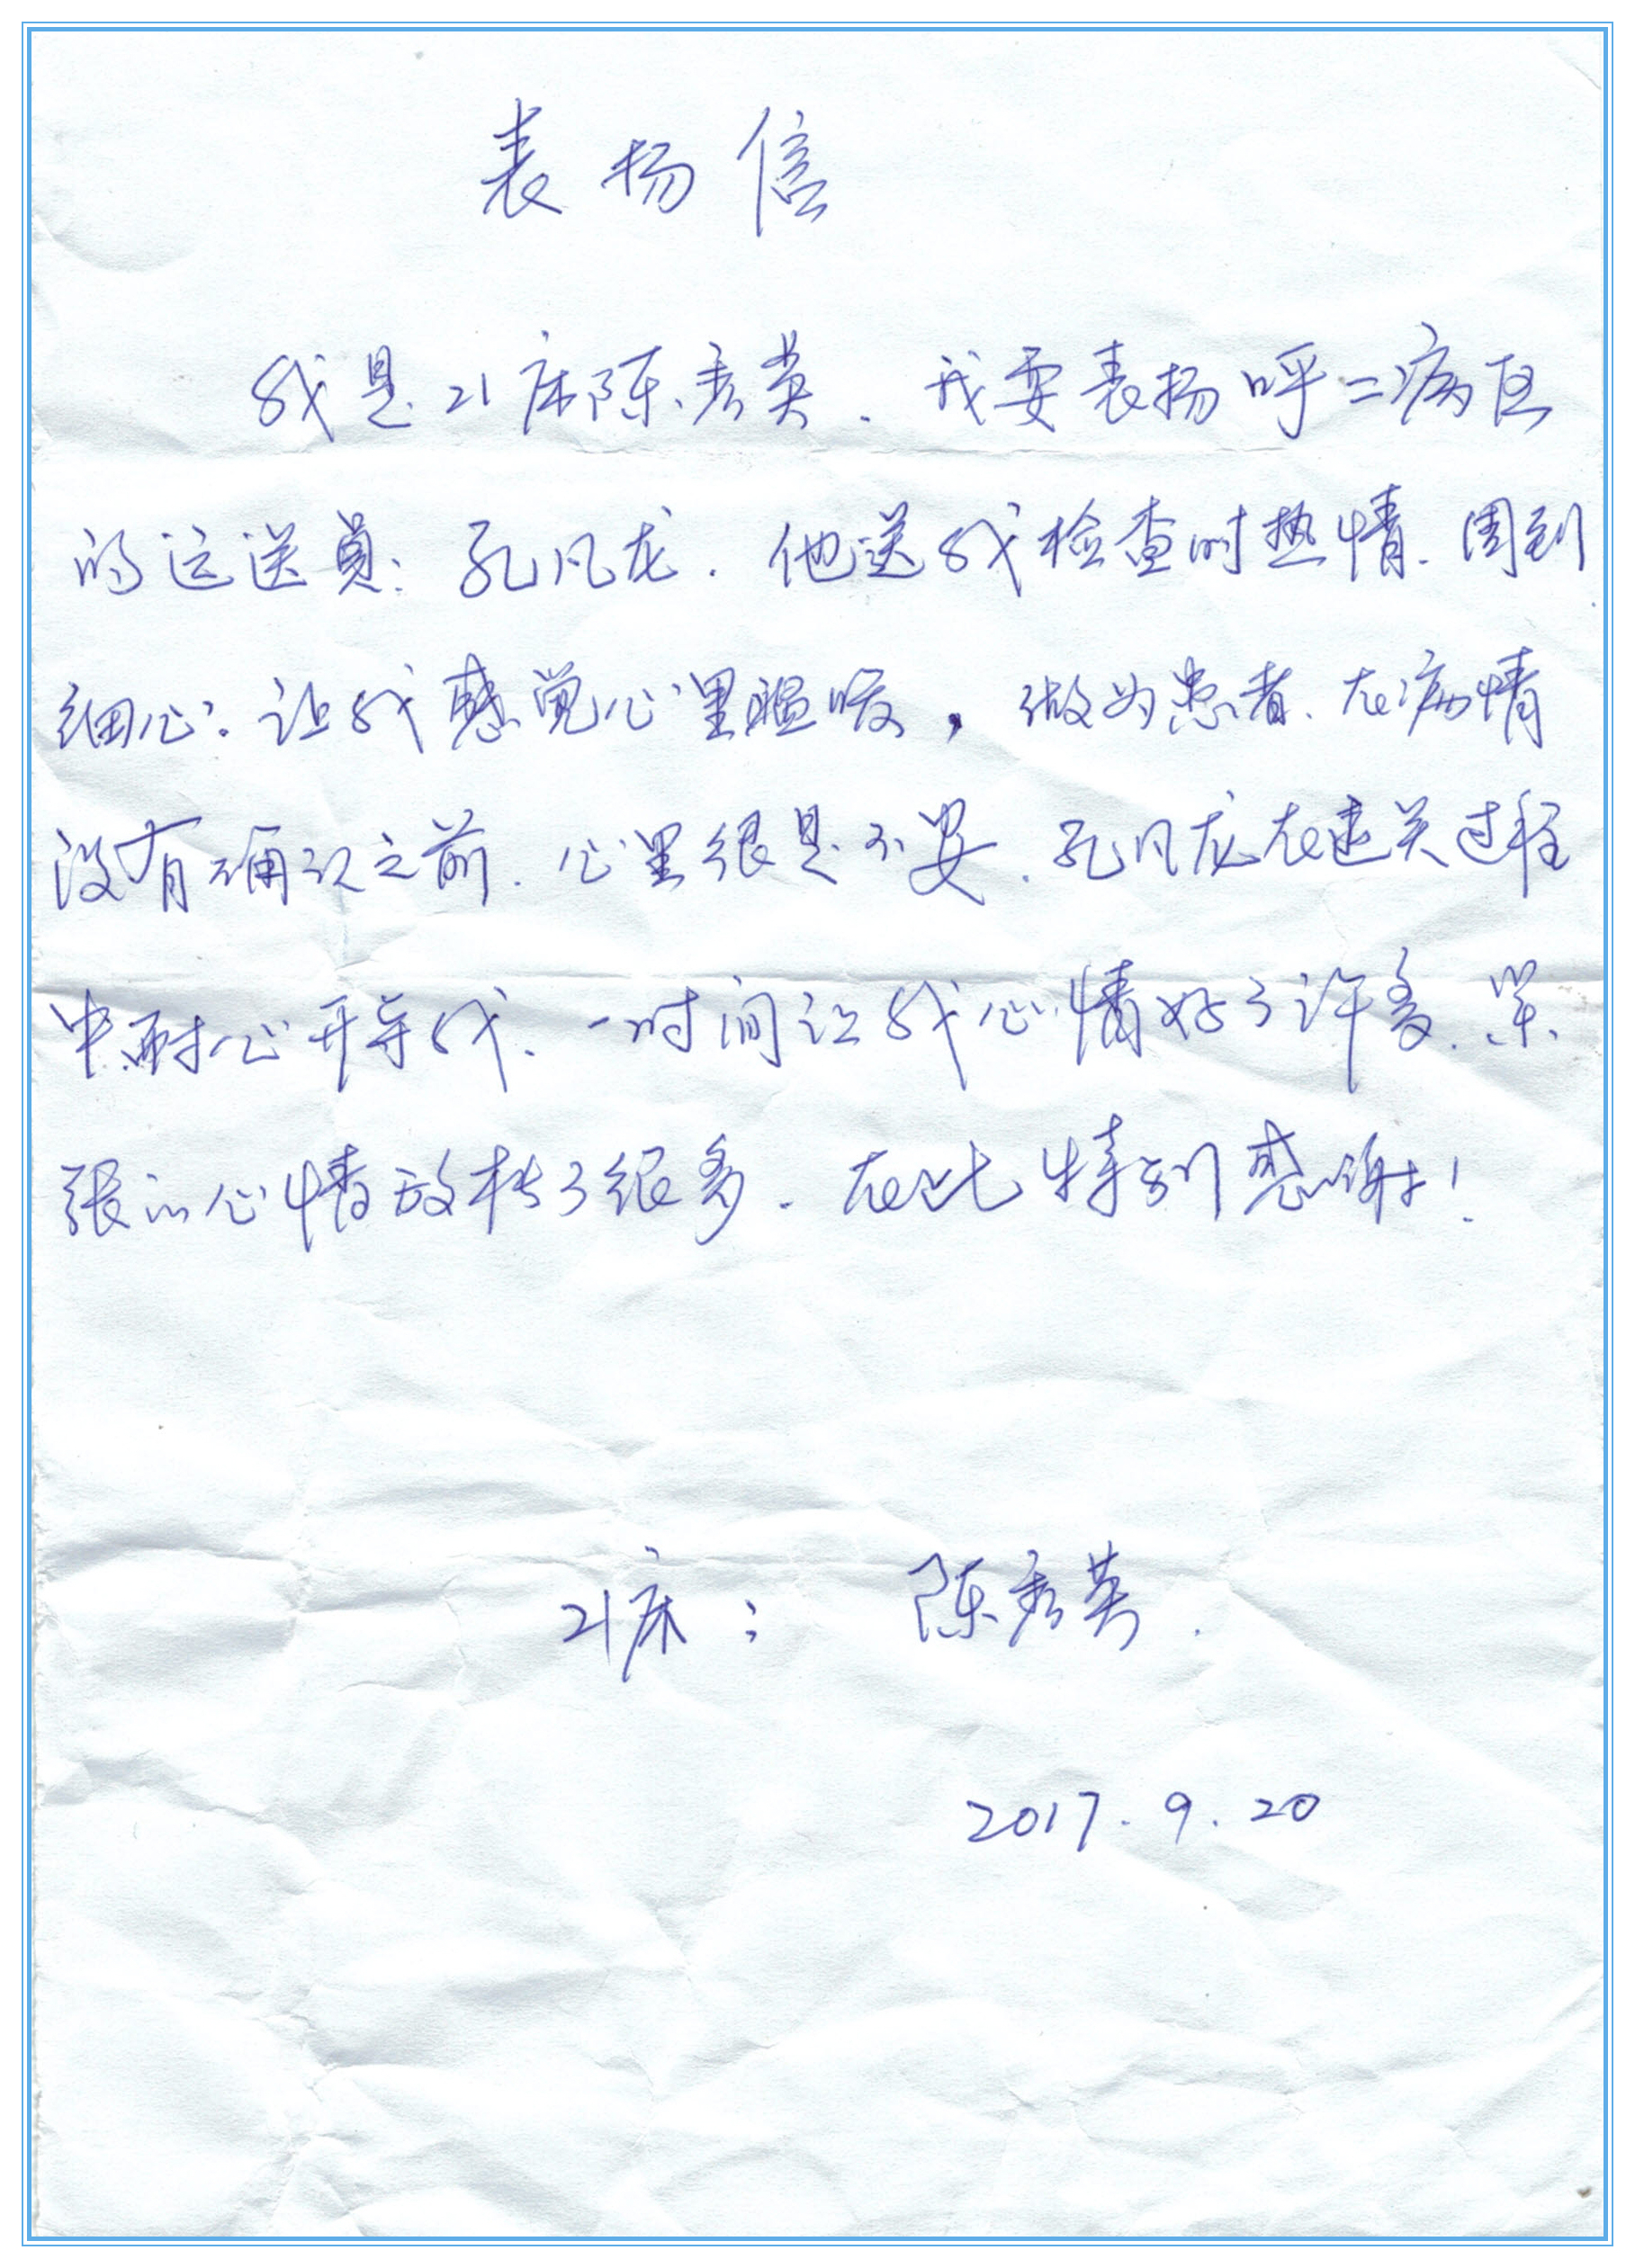 表扬信
我是21床陈秀英. 我要表扬呼二病区
的运送员: 孔凡龙. 他送我检查时热情. 周到
细心: 让我感觉心里温暖, 做为患者. 在病情
没有确认之前. 心里很是不安. 孔凡龙在过程
中耐心开导我. 一时间让我心情好了许多. 紧
张的心情放松了很多. 在此特别感谢!
21床: 陈秀英.
2017.9.20